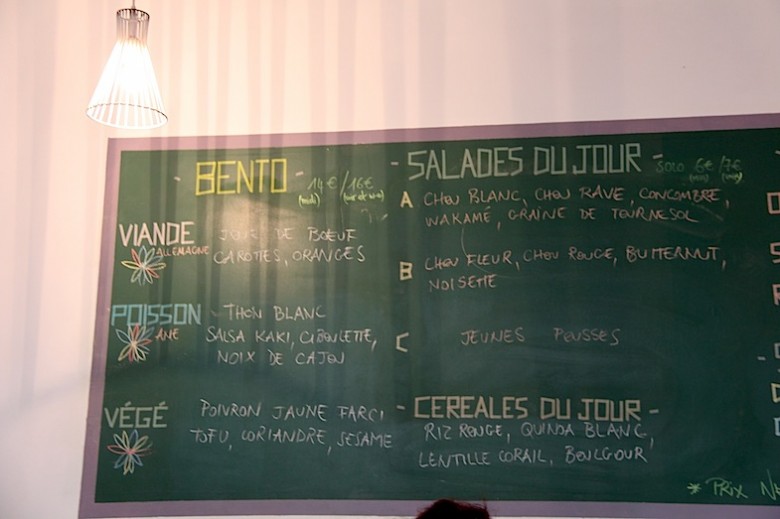 - BENTO - 14€/16€
(midi)
VIANDE JOUE DE BŒUF
ALLEMAGNE CAROTTES, ORANGES
POISSON - THON BLANC
SALSA KAKI, CIBOULETTE,
NOIX DE CAJOU
VÉGÉ POIVRON JAUNE FARCI
TOFU, CORIANDRE, SESAME
- SALADES DU JOUR - SOLO 6€/7€
(midi) (soir)
A CHOU BLANC, CHOU RAVE, CONCOMBRE,
WAKAMÉ, GRAINE DE TOURNESOL
B CHOU FLEUR, CHOU ROUGE, BUTTERNUT,
NOISETTE
C JEUNES POUSSES
- CEREALES DU JOUR -
RIZ ROUGE, QUINOA BLANC,
LENTILLE CORAIL, BOULGOUR
* PRIX